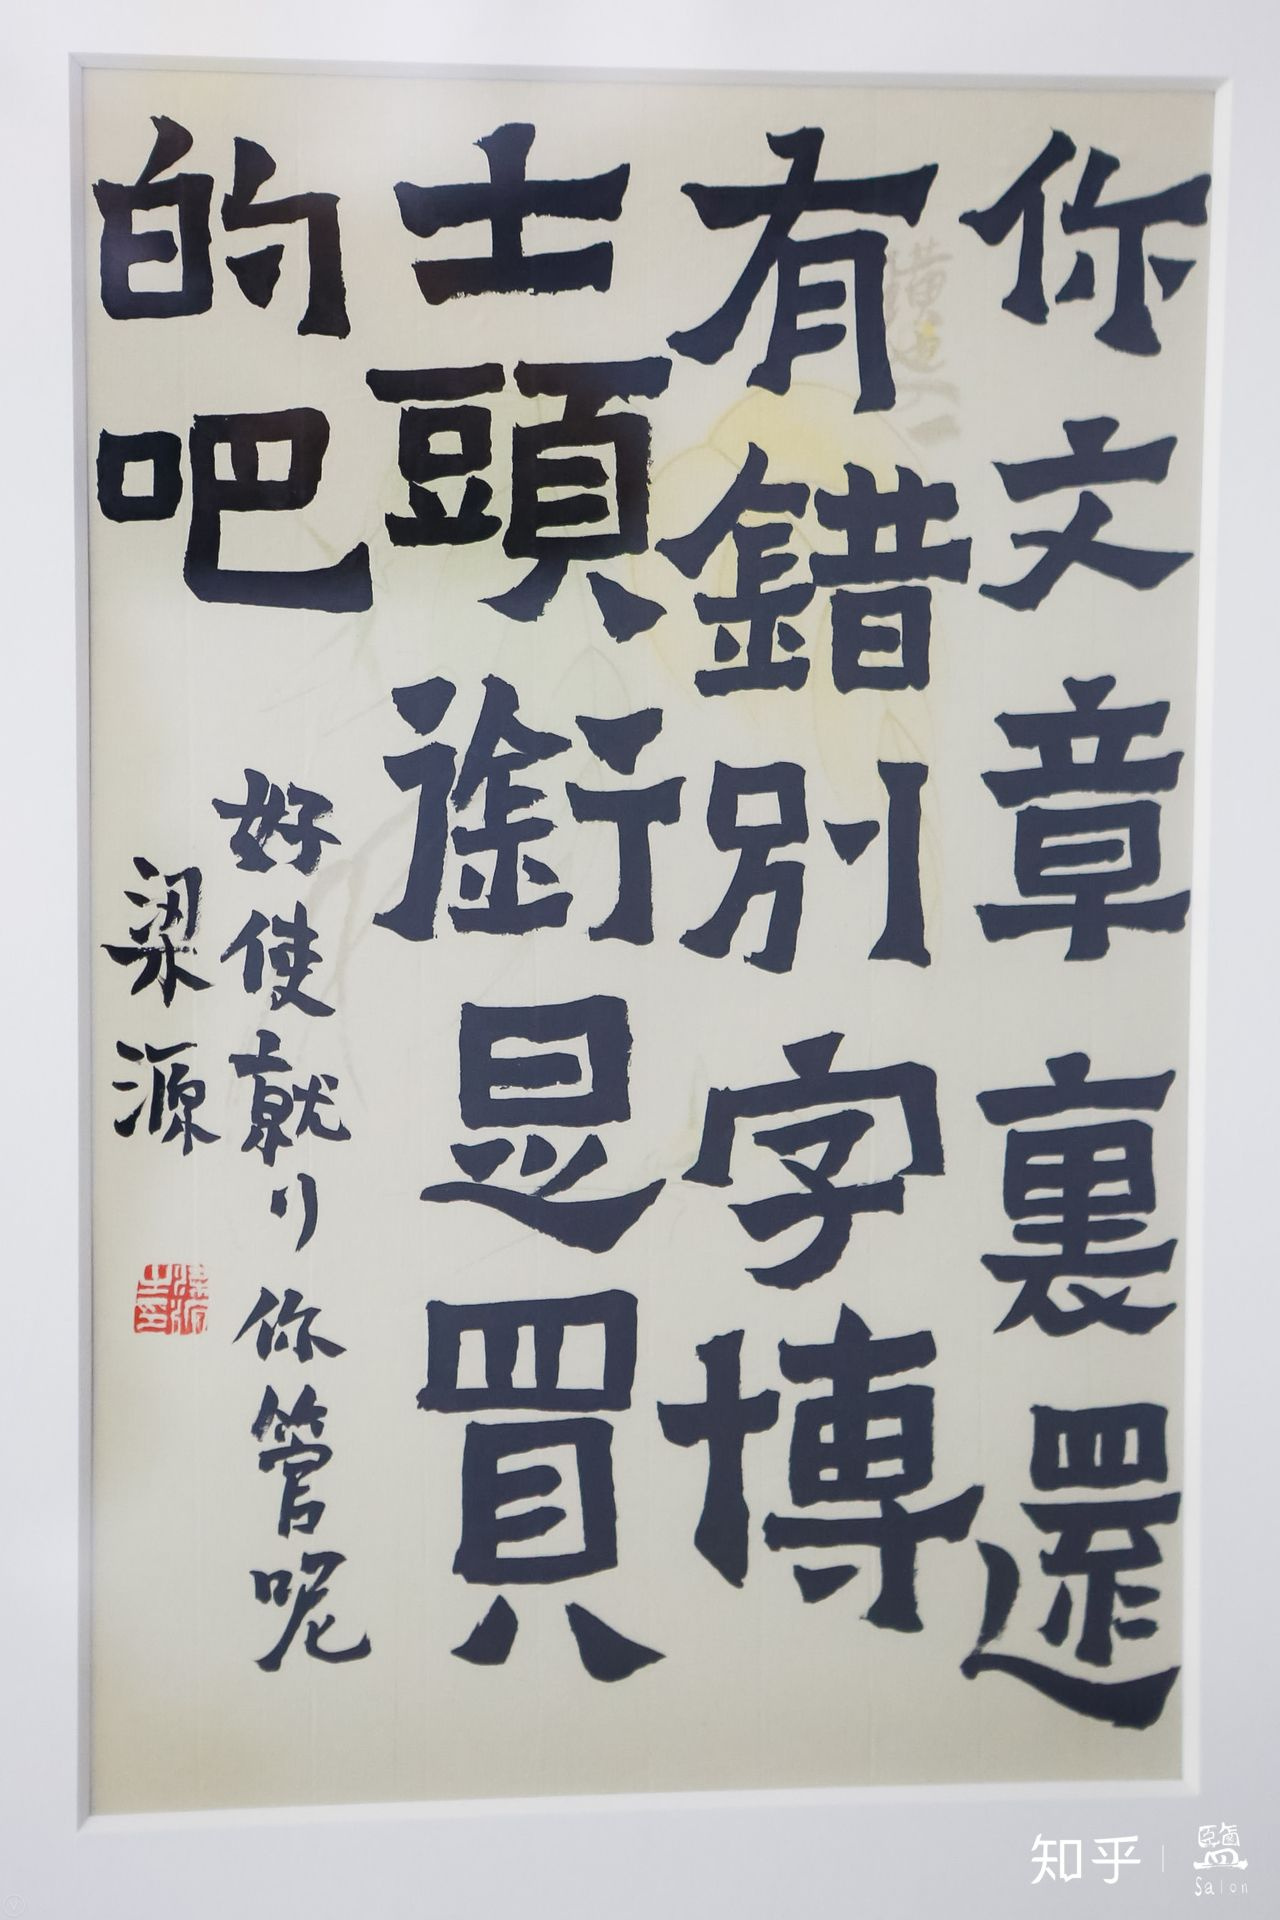 你文章裏還
有錯別字博
士頭銜是買
的吧
好使就行你管呢
梁源
知乎
鹽
Salon